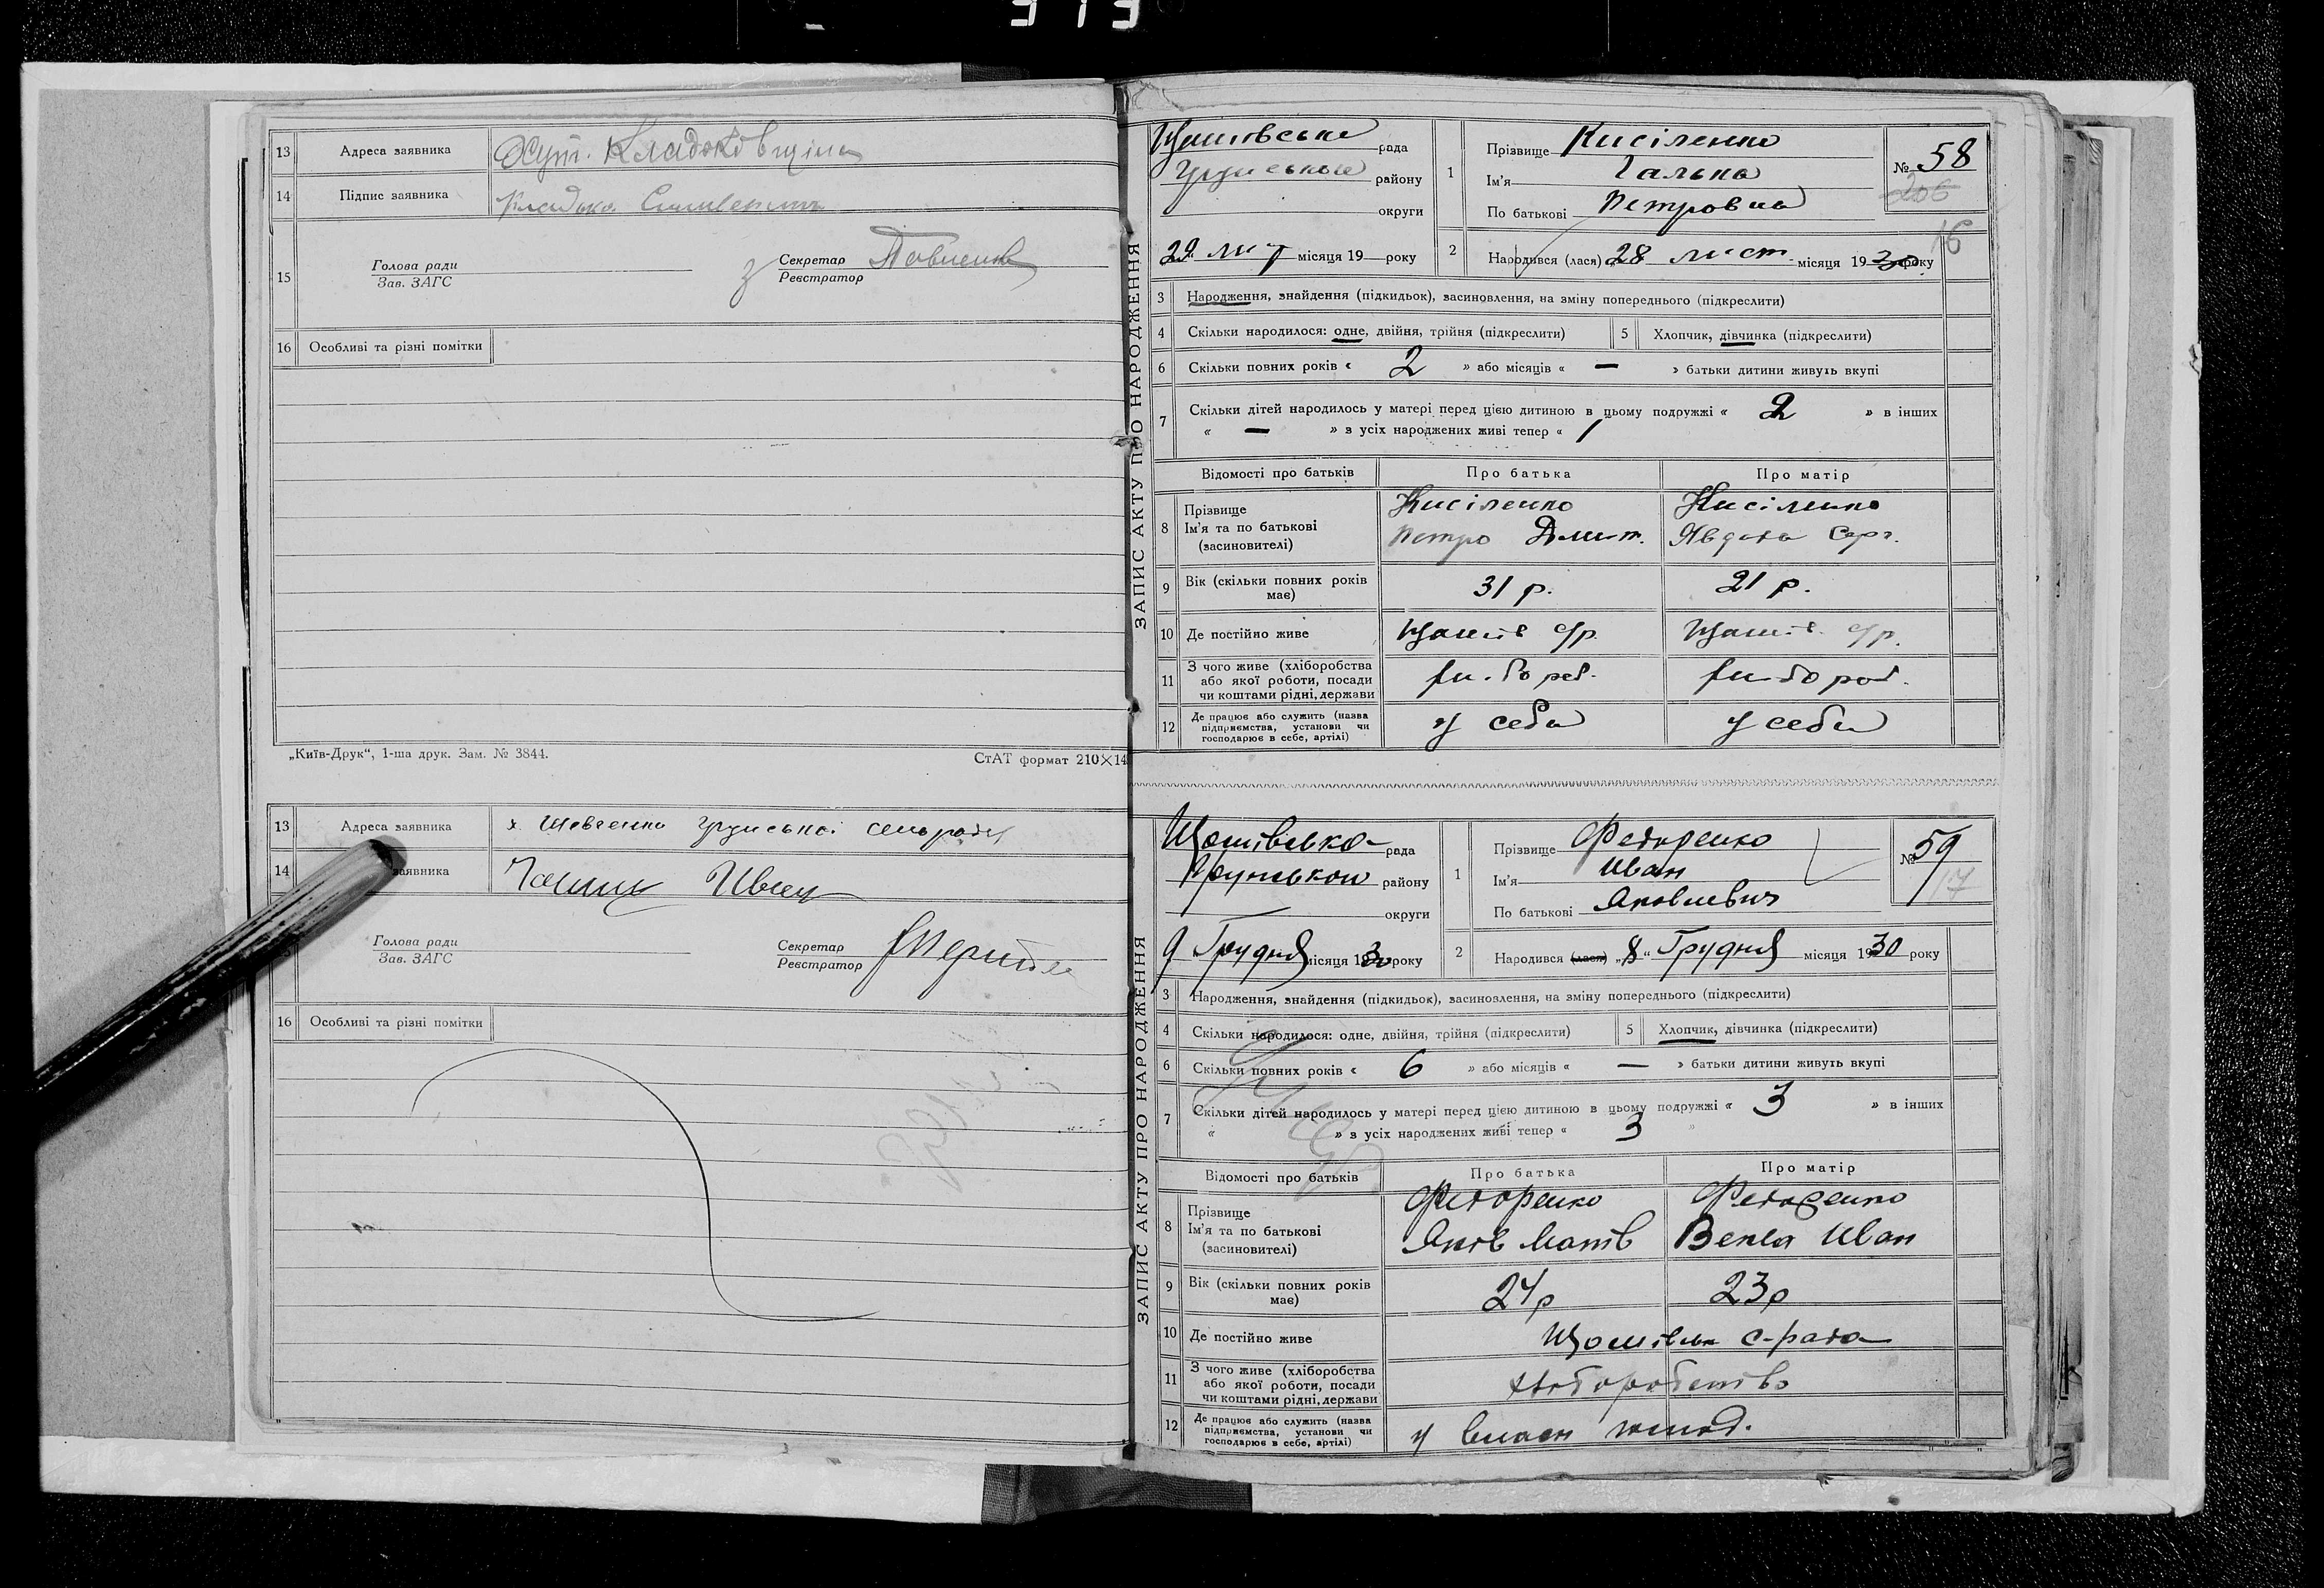 13 Адреса заявника Хут. Кладьковщина
14 Підпис заявника Кладько
15 Голова ради
Зав. ЗАГС
з Секретар
Реєстратор
16 Особливі та різні помітки
„Київ-Друк“, 1-ша друк. Зам. № 3844. СтАТ формат 210×14
13 Адреса заявника х. Шевченка Грунської сельради
14 заявника
Голова ради
Зав. ЗАГС
Секретар
Реєстратор
16 Особливі та різні помітки
ЗАПИС АКТУ ПРО НАРОДЖЕННЯ
рада
району
округи
29 лист місяця 19 року
1 Прізвище Кисіленко
Ім'я Гальна
По батькові Петровна
№ 58
206
16
2 Народився (лася) „28 лист. місяця 1930 року
3 Народження, знайдення (підкидьок), засиновлення, на зміну попереднього (підкреслити)
4 Скільки народилося: одне, двійня, трійня (підкреслити) 5 Хлопчик, дівчинка (підкреслити)
6 Скільки повних років « 2 » або місяців « — » батьки дитини живуть вкупі
7 Скільки дітей народилось у матері перед цією дитиною в цьому подружжі « 2 » в інших
« — » з усіх народжених живі тепер « 1
Відомості про батьків Про батька Про матір
8 Прізвище
Ім'я та по батькові
(засиновителі)
Кисіленко Кисіленко
Петро Дмит. Явдоха Серг.
9 Вік (скільки повних років має) 31 р. 21 р.
10 Де постійно живе с/р. с/р.
11 З чого живе (хліборобства
або якої роботи, посади
чи коштами рідні, держави
12 Де працює або служить (назва
підприємства, установи чи
господарює в себе, артілі)
у себе у себе
ЗАПИС АКТУ ПРО НАРОДЖЕННЯ
рада
Грунського району
округи
9 Грудня місяця 1930 року
1 Прізвище Федоренко
Ім'я Иван
По батькові Яковлевич
№ 59
17
2 Народився (лася) „8“ Грудня місяця 1930 року
3 Народження, знайдення (підкидьок), засиновлення, на зміну попереднього (підкреслити)
4 Скільки народилося: одне, двійня, трійня (підкреслити) 5 Хлопчик, дівчинка (підкреслити)
6 Скільки повних років « 6 » або місяців « — » батьки дитини живуть вкупі
7 Скільки дітей народилось у матері перед цією дитиною в цьому подружжі « 3 » в інших
« » з усіх народжених живі тепер « 3 »
Відомості про батьків Про батька Про матір
8 Прізвище
Ім'я та по батькові
(засиновителі)
Федоренко Федоренко
Яків Матв Векла Иван
9 Вік (скільки повних років має) 24 р 23 р
10 Де постійно живе с-рада
11 З чого живе (хліборобства
або якої роботи, посади
чи коштами рідні, держави
Хліборобство
12 Де працює або служить (назва
підприємства, установи чи
господарює в себе, артілі)
у власн господ.